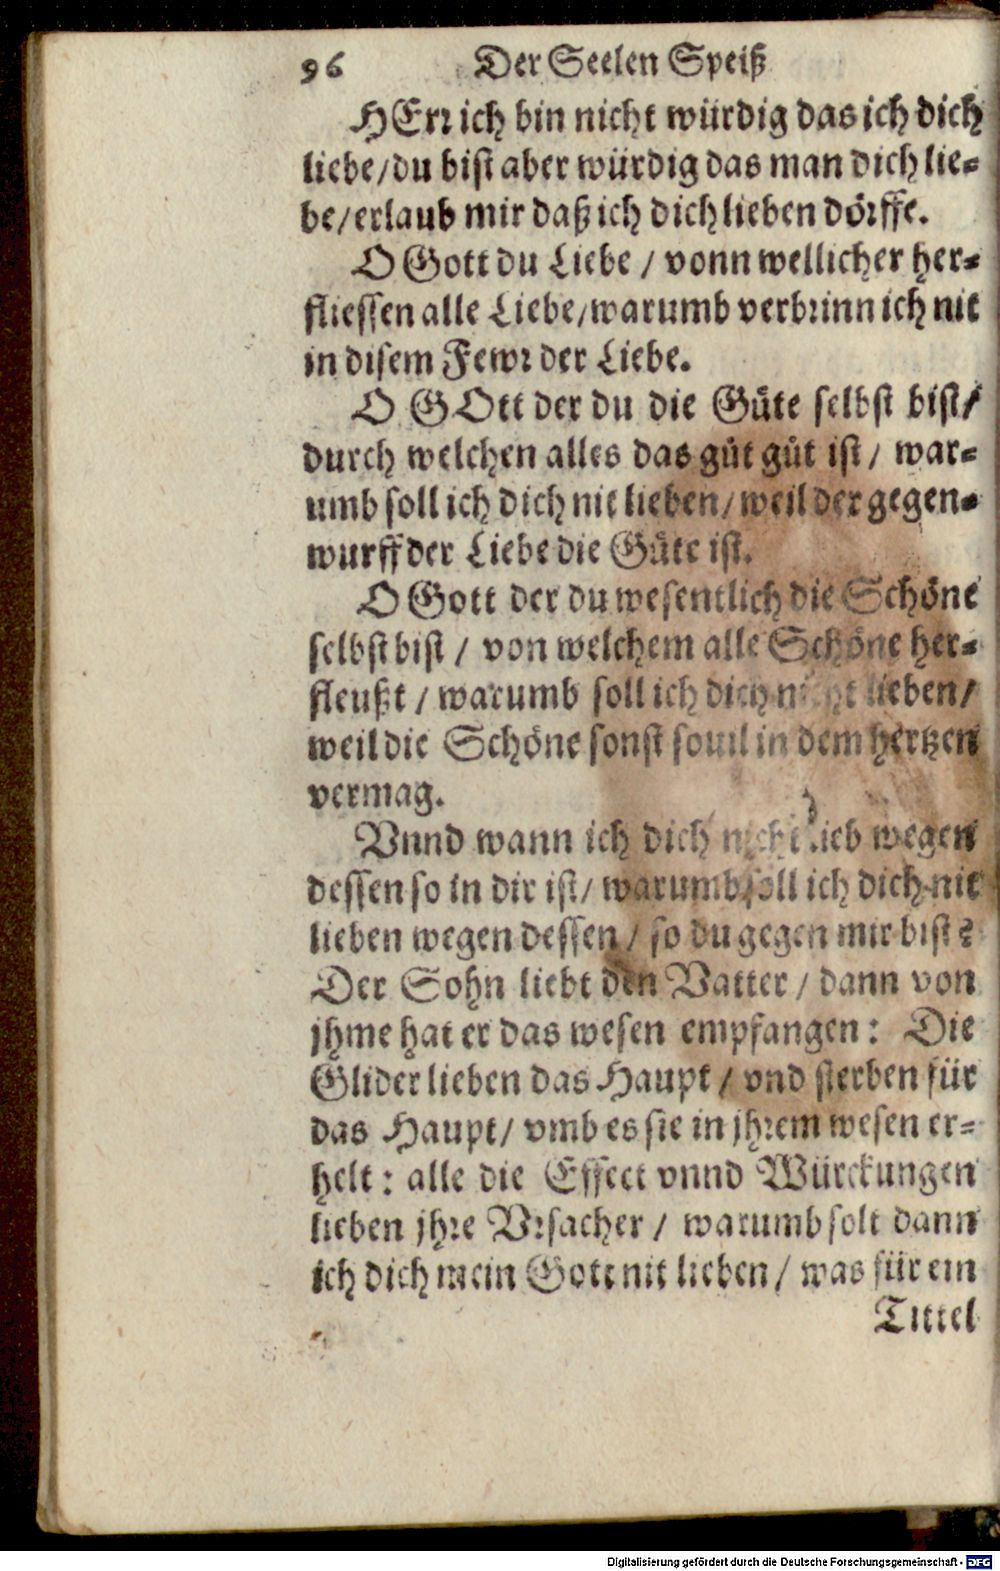 96 Der Seelen Speiß
HErr ich bin nicht würdig das ich dich
liebe/du bist aber würdig das man dich lie⸗
be/erlaub mir daß ich dich lieben dörffe.
O Gott du Liebe / vonn wellicher her⸗
fliessen alle Liebe/warumb verbrinn ich nit
in disem Fewr der Liebe.
O GOtt der du die Güte selbst bist/
durch welchen alles das gůt gůt ist / war⸗
umb soll ich dich nit lieben/weil der gegen⸗
wurff der Liebe die Güte ist.
O Gott der du wesentlich die Schöne
selbst bist / von welchem alle Schöne her⸗
fleußt / warumb soll ich dich nicht lieben/
weil die Schöne sonst souil in dem hertzen
vermag.
Vnnd wann ich dich nicht lieb wegen
dessen so in dir ist/ warumb soll ich dich nit
lieben wegen dessen / so du gegen mir bist?
Der Sohn liebt den Vatter / dann von
jhme hat er das wesen empfangen: Die
Glider lieben das Haupt / vnd sterben für
das Haupt/ vmb es sie in jhrem wesen er⸗
helt: alle die Effect vnnd Würckungen
lieben jhre Vrsacher / warumb solt dann
ich dich mein Gott nit lieben / was für ein
Tittel
Digitalisierung gefördert durch die Deutsche Forschungsgemeinschaft - DFG